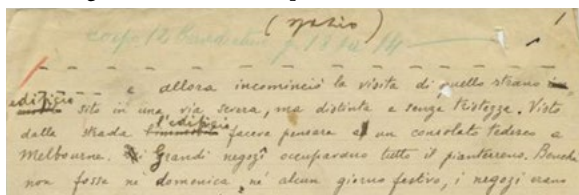 (spazio) 1
corpo 12
e allora incominciò la visita di quello strano
edifizio sito in una via severa, ma distinta e senza tristezza. Visto
dalla strada l'edifizio faceva pensare a un consolato tedesco a
Melbourne. Grandi negozi occupavano tutto il pianterreno. Benchè
non fosse nè domenica, nè alcun giorno festivo, i negozi erano